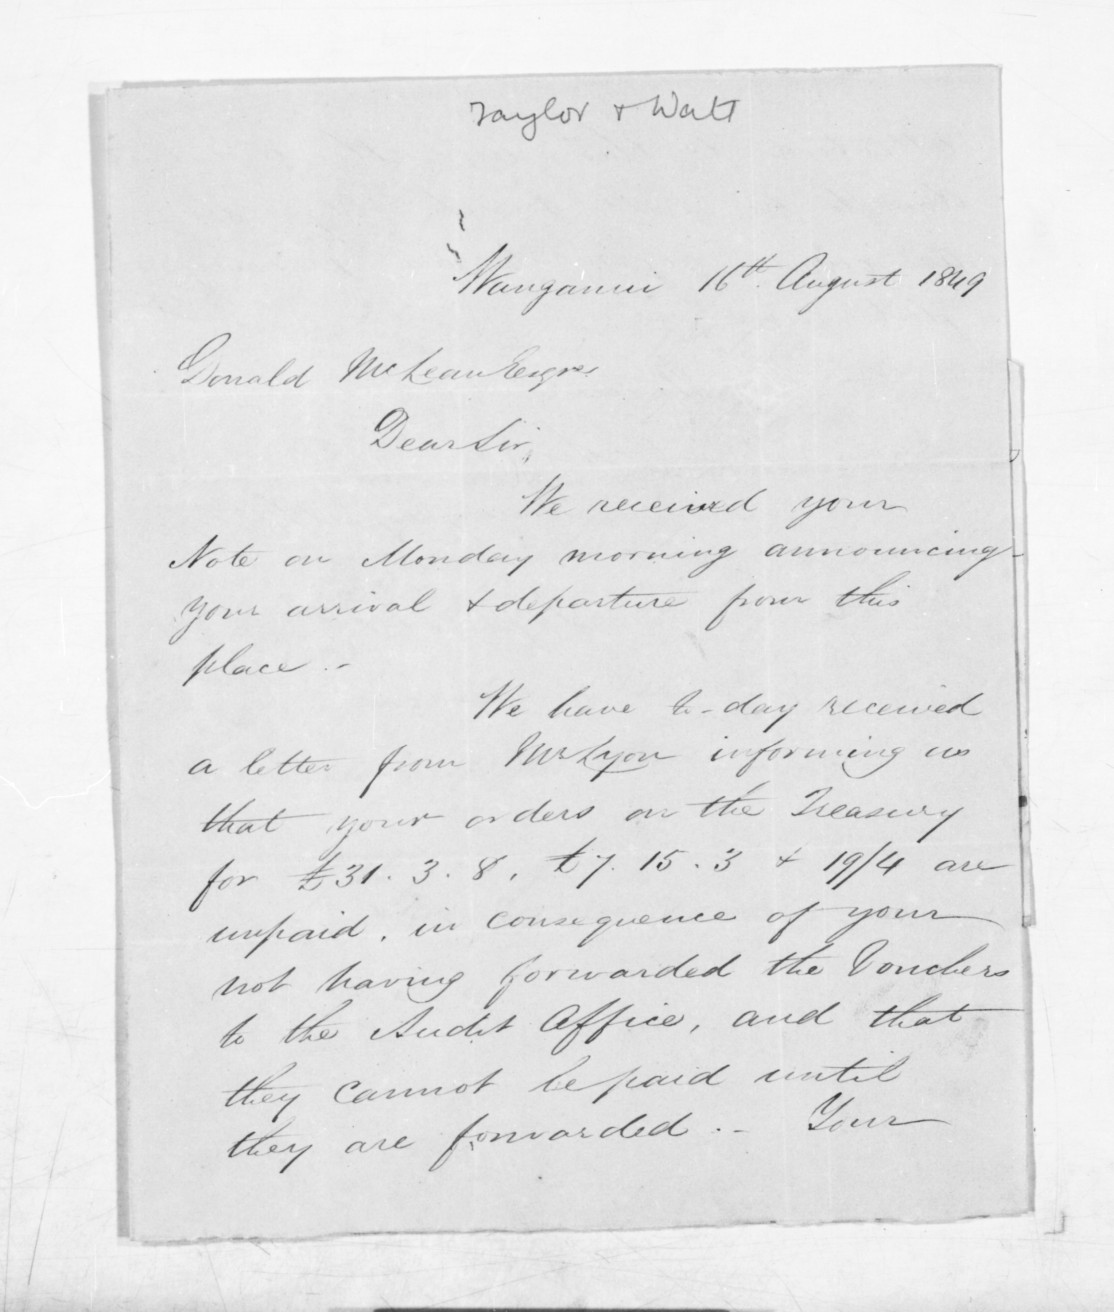 Taylor & Watt
Wanganui 16th. August 1849
Donald McLean Esqre
Dear Sir,
We received your
Note on Monday morning announcing
your arrival & departure from this
place. -
We have to-day received
a letter from Mr Lyon informing us
that your orders on the Treasury
for £31. 3. 8, £7. 15. 3 & 19/4 are
unpaid, in consequence of your
not having forwarded the Vouchers
to the Audit Office, and that
they cannot be paid until
they are forwarded. - Your